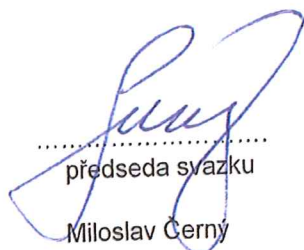 ........................................
předseda svazku
Miloslav Černý